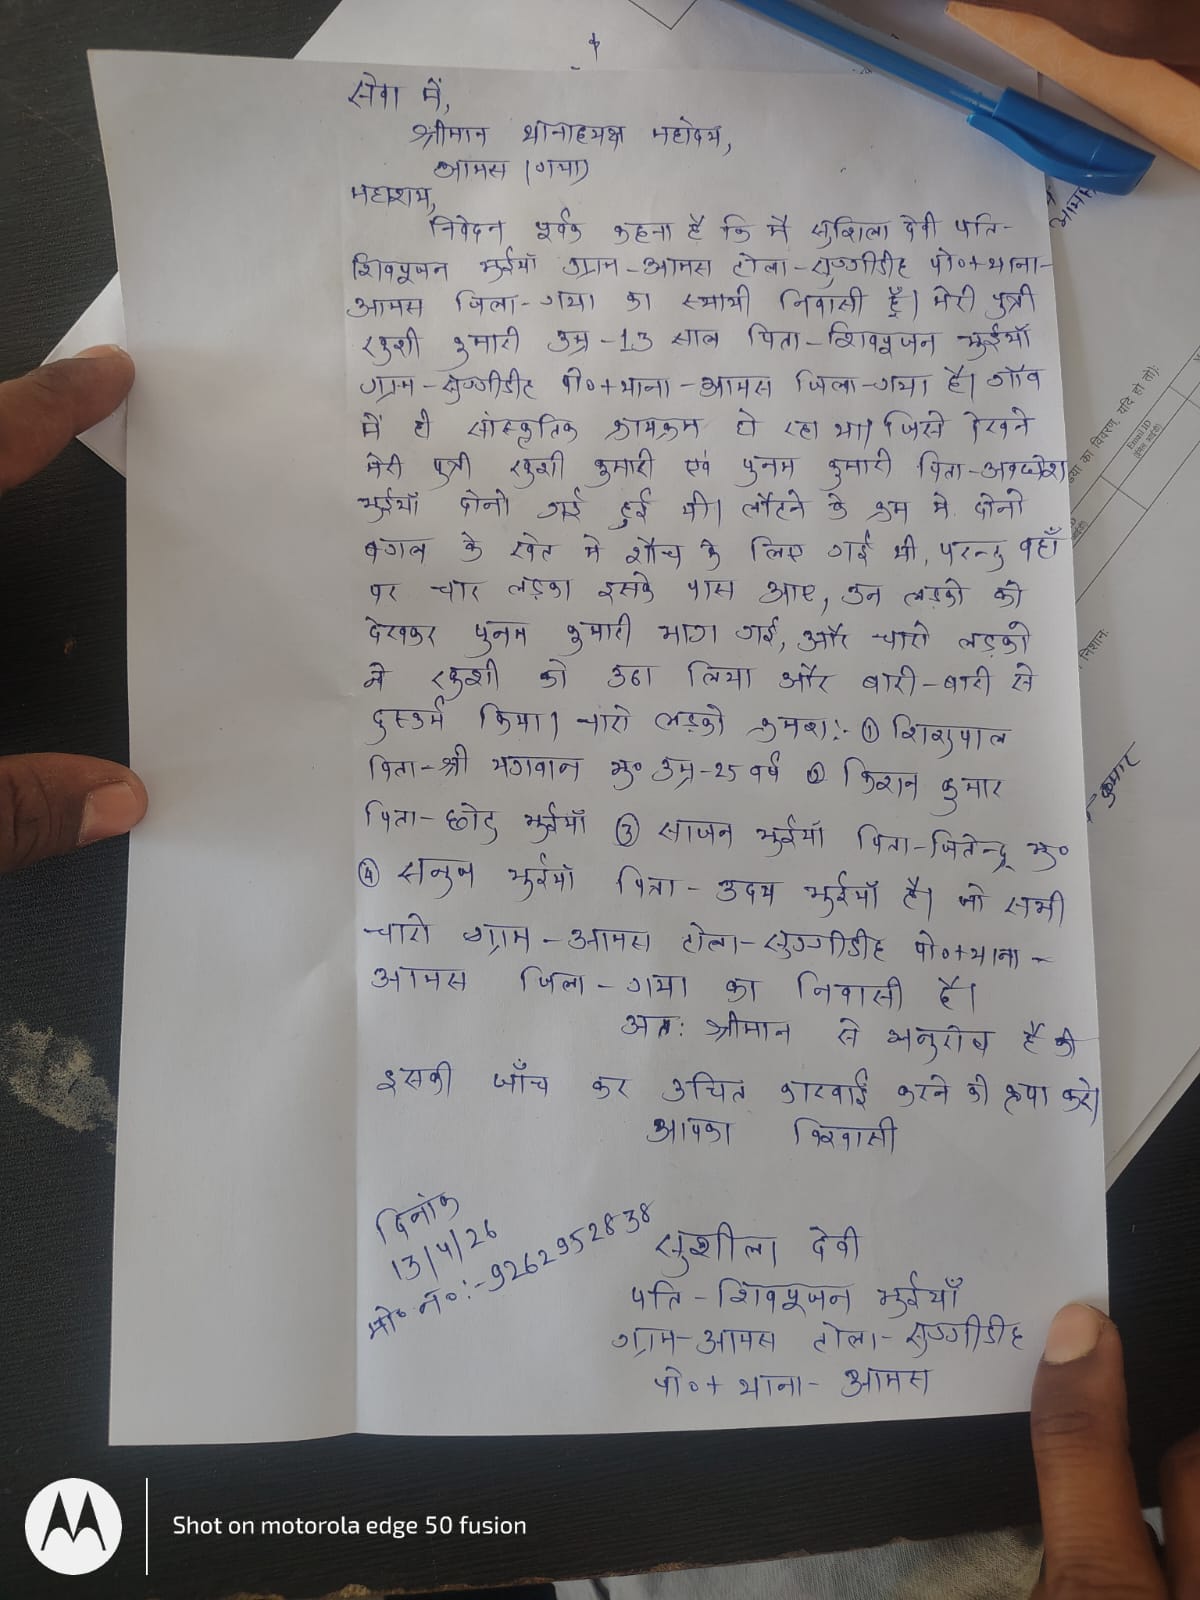 सेवा में,
श्रीमान थानाध्यक्ष महोदय,
आमस (गया)
महाशय,
निवेदन पूर्वक कहना है कि मै सुशिला देवी पति-
शिवपूजन भुईयाँ ग्राम-आमस टोला-सुग्गीडीह पो०+थाना-
आमस जिला-गया का स्थायी निवासी हूँ। मेरी पुत्री
खुशी कुमारी उम्र-13 साल पिता-शिवपूजन भुईयाँ
ग्राम-सुग्गीडीह पो०+थाना-आमस जिला-गया है। गाँव
में ही सांस्कृतिक कायक्रम हो रहा था। जिसे देखने
मेरी पुत्री खुशी कुमारी एवं पुनम कुमारी पिता-अवधेश
भुईयाँ दोनो गई हुई थी। लौटने के क्रम मे दोनो
बगल के खेत मे शौच के लिए गई थी, परन्तु वहाँ
पर चार लड़का इसके पास आए, उन लड़को को
देखकर पुनम कुमारी भाग गई, और चारो लड़को
ने खुशी को उठा लिया और बारी-बारी से
दुस्कर्म किया। चारो लड़को क्रमश:- ① शिशुपाल
पिता-श्री भगवान भु० उम्र-25 वर्ष ② किशन कुमार
पिता-छोटु भुईयाँ ③ साजन भुईयाँ पिता-जितेन्द्र भु०
④ सनुज भुईयाँ पिता-उदय भुईयाँ है। जो सभी
चारो ग्राम-आमस टोला-सुग्गीडीह पो०+थाना-
आमस जिला-गया का निवासी है।
अत: श्रीमान से अनुरोध है की
इसकी जाँच कर उचित कारवाई करने की कृपा करे।
आपका विश्वासी
दिनांक
13/4/26
मो० न०:-9262952838
सुशीला देवी
पति-शिवपूजन भुईयाँ
ग्राम-आमस टोला-सुग्गीडीह
पो०+थाना-आमस
आमस
का विवरण, यदि हो तो):
Email ID
निशान:
कुमार
Shot on motorola edge 50 fusion